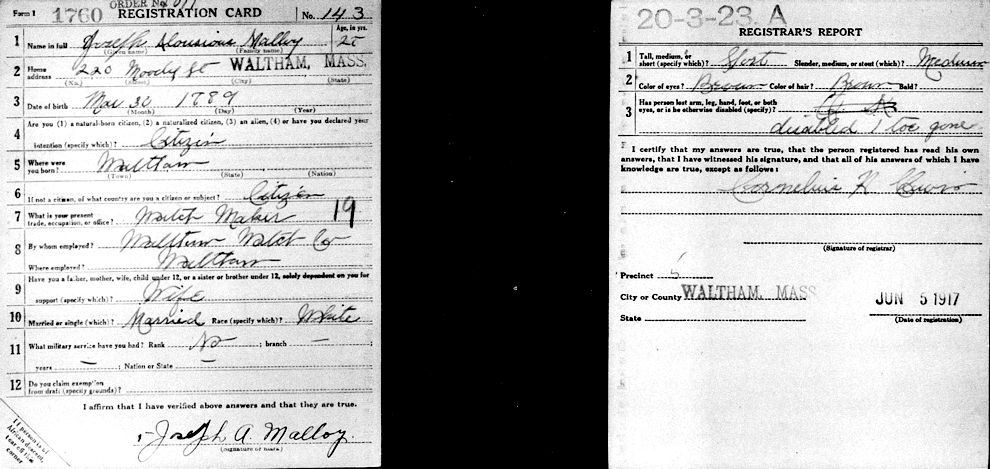 Form 1 1760 ORDER No. REGISTRATION CARD No. 143
1 Name in full Joseph Alousious Malloy Age, in yrs.
(Given name) (Family name)
2 Home address 220 Moody St WALTHAM, MASS.
(No.) (Street) (City) (State)
3 Date of birth Mar 30 1889
(Month) (Day) (Year)
Are you (1) a natural-born citizen, (2) a naturalized citizen, (3) an alien, (4) or have you declared your
4 intention (specify which)? Citizen
5 Where were you born? Waltham
(Town) (State) (Nation)
6 If not a citizen, of what country are you a citizen or subject? Citizen
7 What is your present trade, occupation, or office? Watch Maker 19
8 By whom employed? Waltham Watch Co
Where employed? Waltham
9 Have you a father, mother, wife, child under 12, or a sister or brother under 12, solely dependent on you for
support (specify which)? Wife
10 Married or single (which)? Married Race (specify which)? White
11 What military service have you had? Rank No ; branch —
years — ; Nation or State —
12 Do you claim exemption from draft (specify grounds)?
I affirm that I have verified above answers and that they are true.
Joseph A. Malloy
(Signature or mark)
If person is of African descent, tear off this corner
20-3-23. A
REGISTRAR'S REPORT
1 Tall, medium, or short (specify which)? Short Slender, medium, or stout (which)? Medium
2 Color of eyes? Brown Color of hair? Brown Bald?
3 Has person lost arm, leg, hand, foot, or both eyes, or is he otherwise disabled (specify)?
disabled 1 toe gone
I certify that my answers are true, that the person registered has read his own
answers, that I have witnessed his signature, and that all of his answers of which I have
knowledge are true, except as follows:
Cornelius H
(Signature of registrar)
Precinct 5
City or County WALTHAM, MASS
State
JUN 5 1917
(Date of registration)